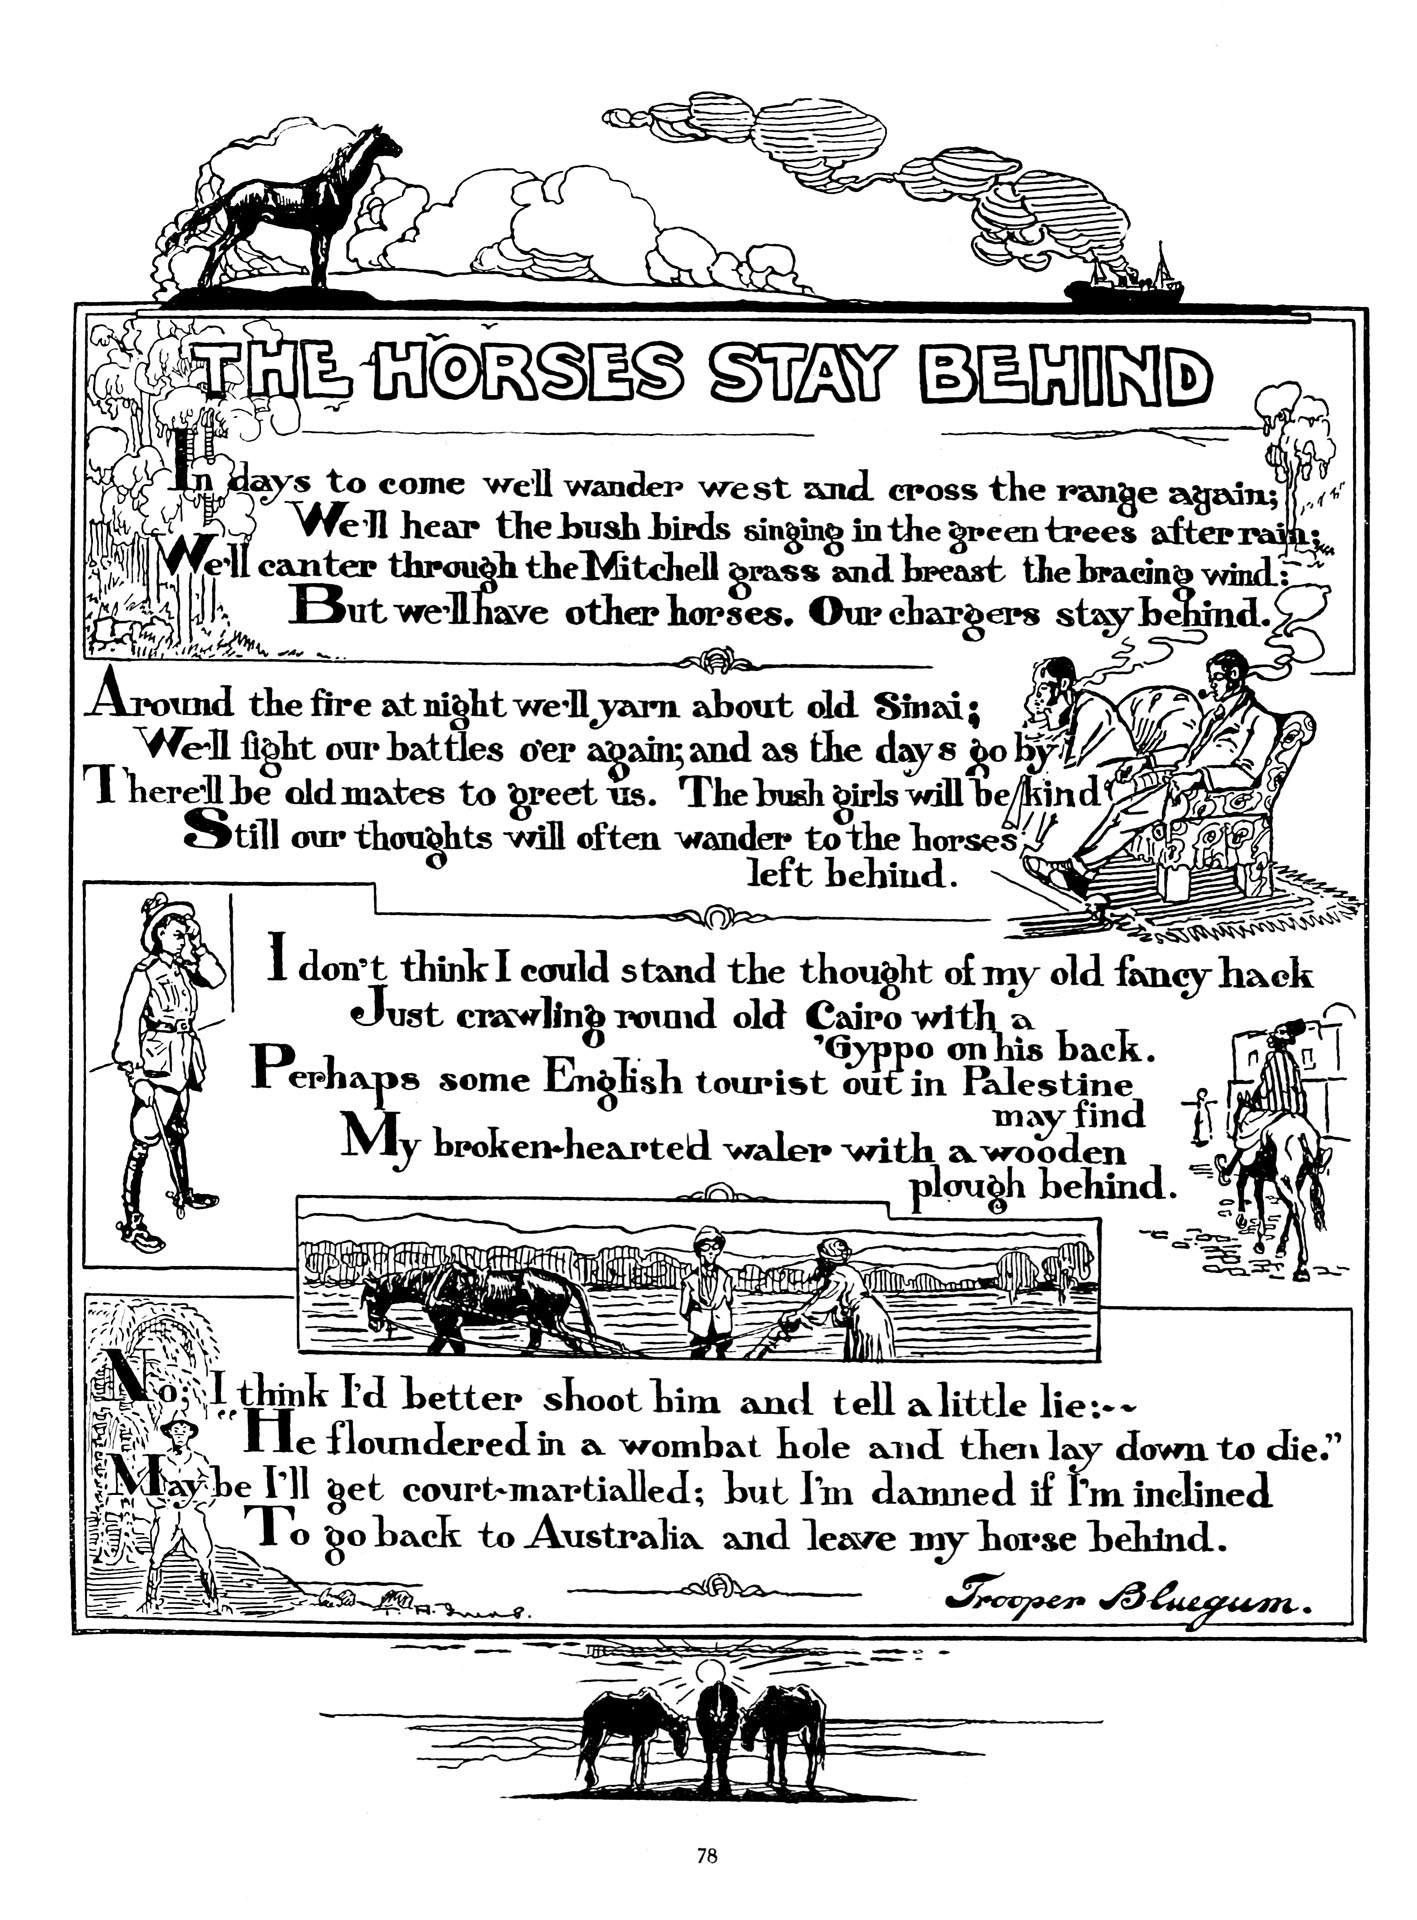 THE HORSES STAY BEHIND
In days to come we'll wander west and cross the range again;
We'll hear the bush birds singing in the green trees after rain;
We'll canter through the Mitchell grass and breast the bracing wind:
But we'll have other horses. Our chargers stay behind.
Around the fire at night we'll yarn about old Sinai;
We'll fight our battles o'er again; and as the days go by
There'll be old mates to greet us. The bush girls will be kind
Still our thoughts will often wander to the horses
left behind.
I don't think I could stand the thought of my old fancy hack
Just crawling round old Cairo with a
'Gyppo on his back.
Perhaps some English tourist out in Palestine
may find
My broken-hearted waler with a wooden
plough behind.
No; I think I'd better shoot him and tell a little lie:--
"He floundered in a wombat hole and then lay down to die."
Maybe I'll get court-martialled; but I'm damned if I'm inclined
To go back to Australia and leave my horse behind.
Trooper Bluegum.
78